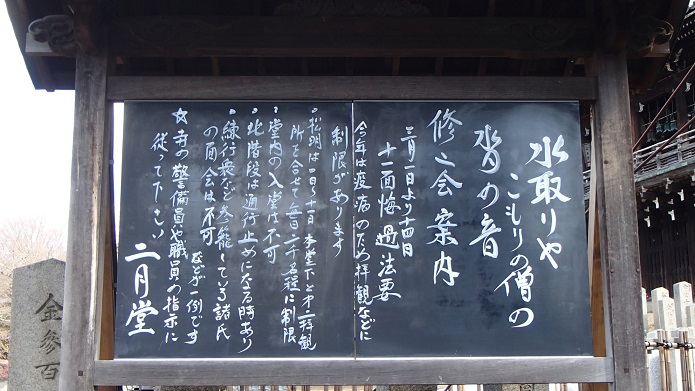 水取りや
こもりの僧の
沓の音
修二会案内
三月一日より十四日
十一面悔過法要
今年は疫病のため拝観などに
制限があります
・松明は一日〜十日 本堂下と才二拝観
所を合せて毎日二千名程に制限
・堂内の入堂は不可
・北階段は通行止めになる時あり
・練行衆など参籠している諸氏
の面会は不可
などが一例です
☆寺の警備員や職員の指示に
従って下さい
二月堂
金参百